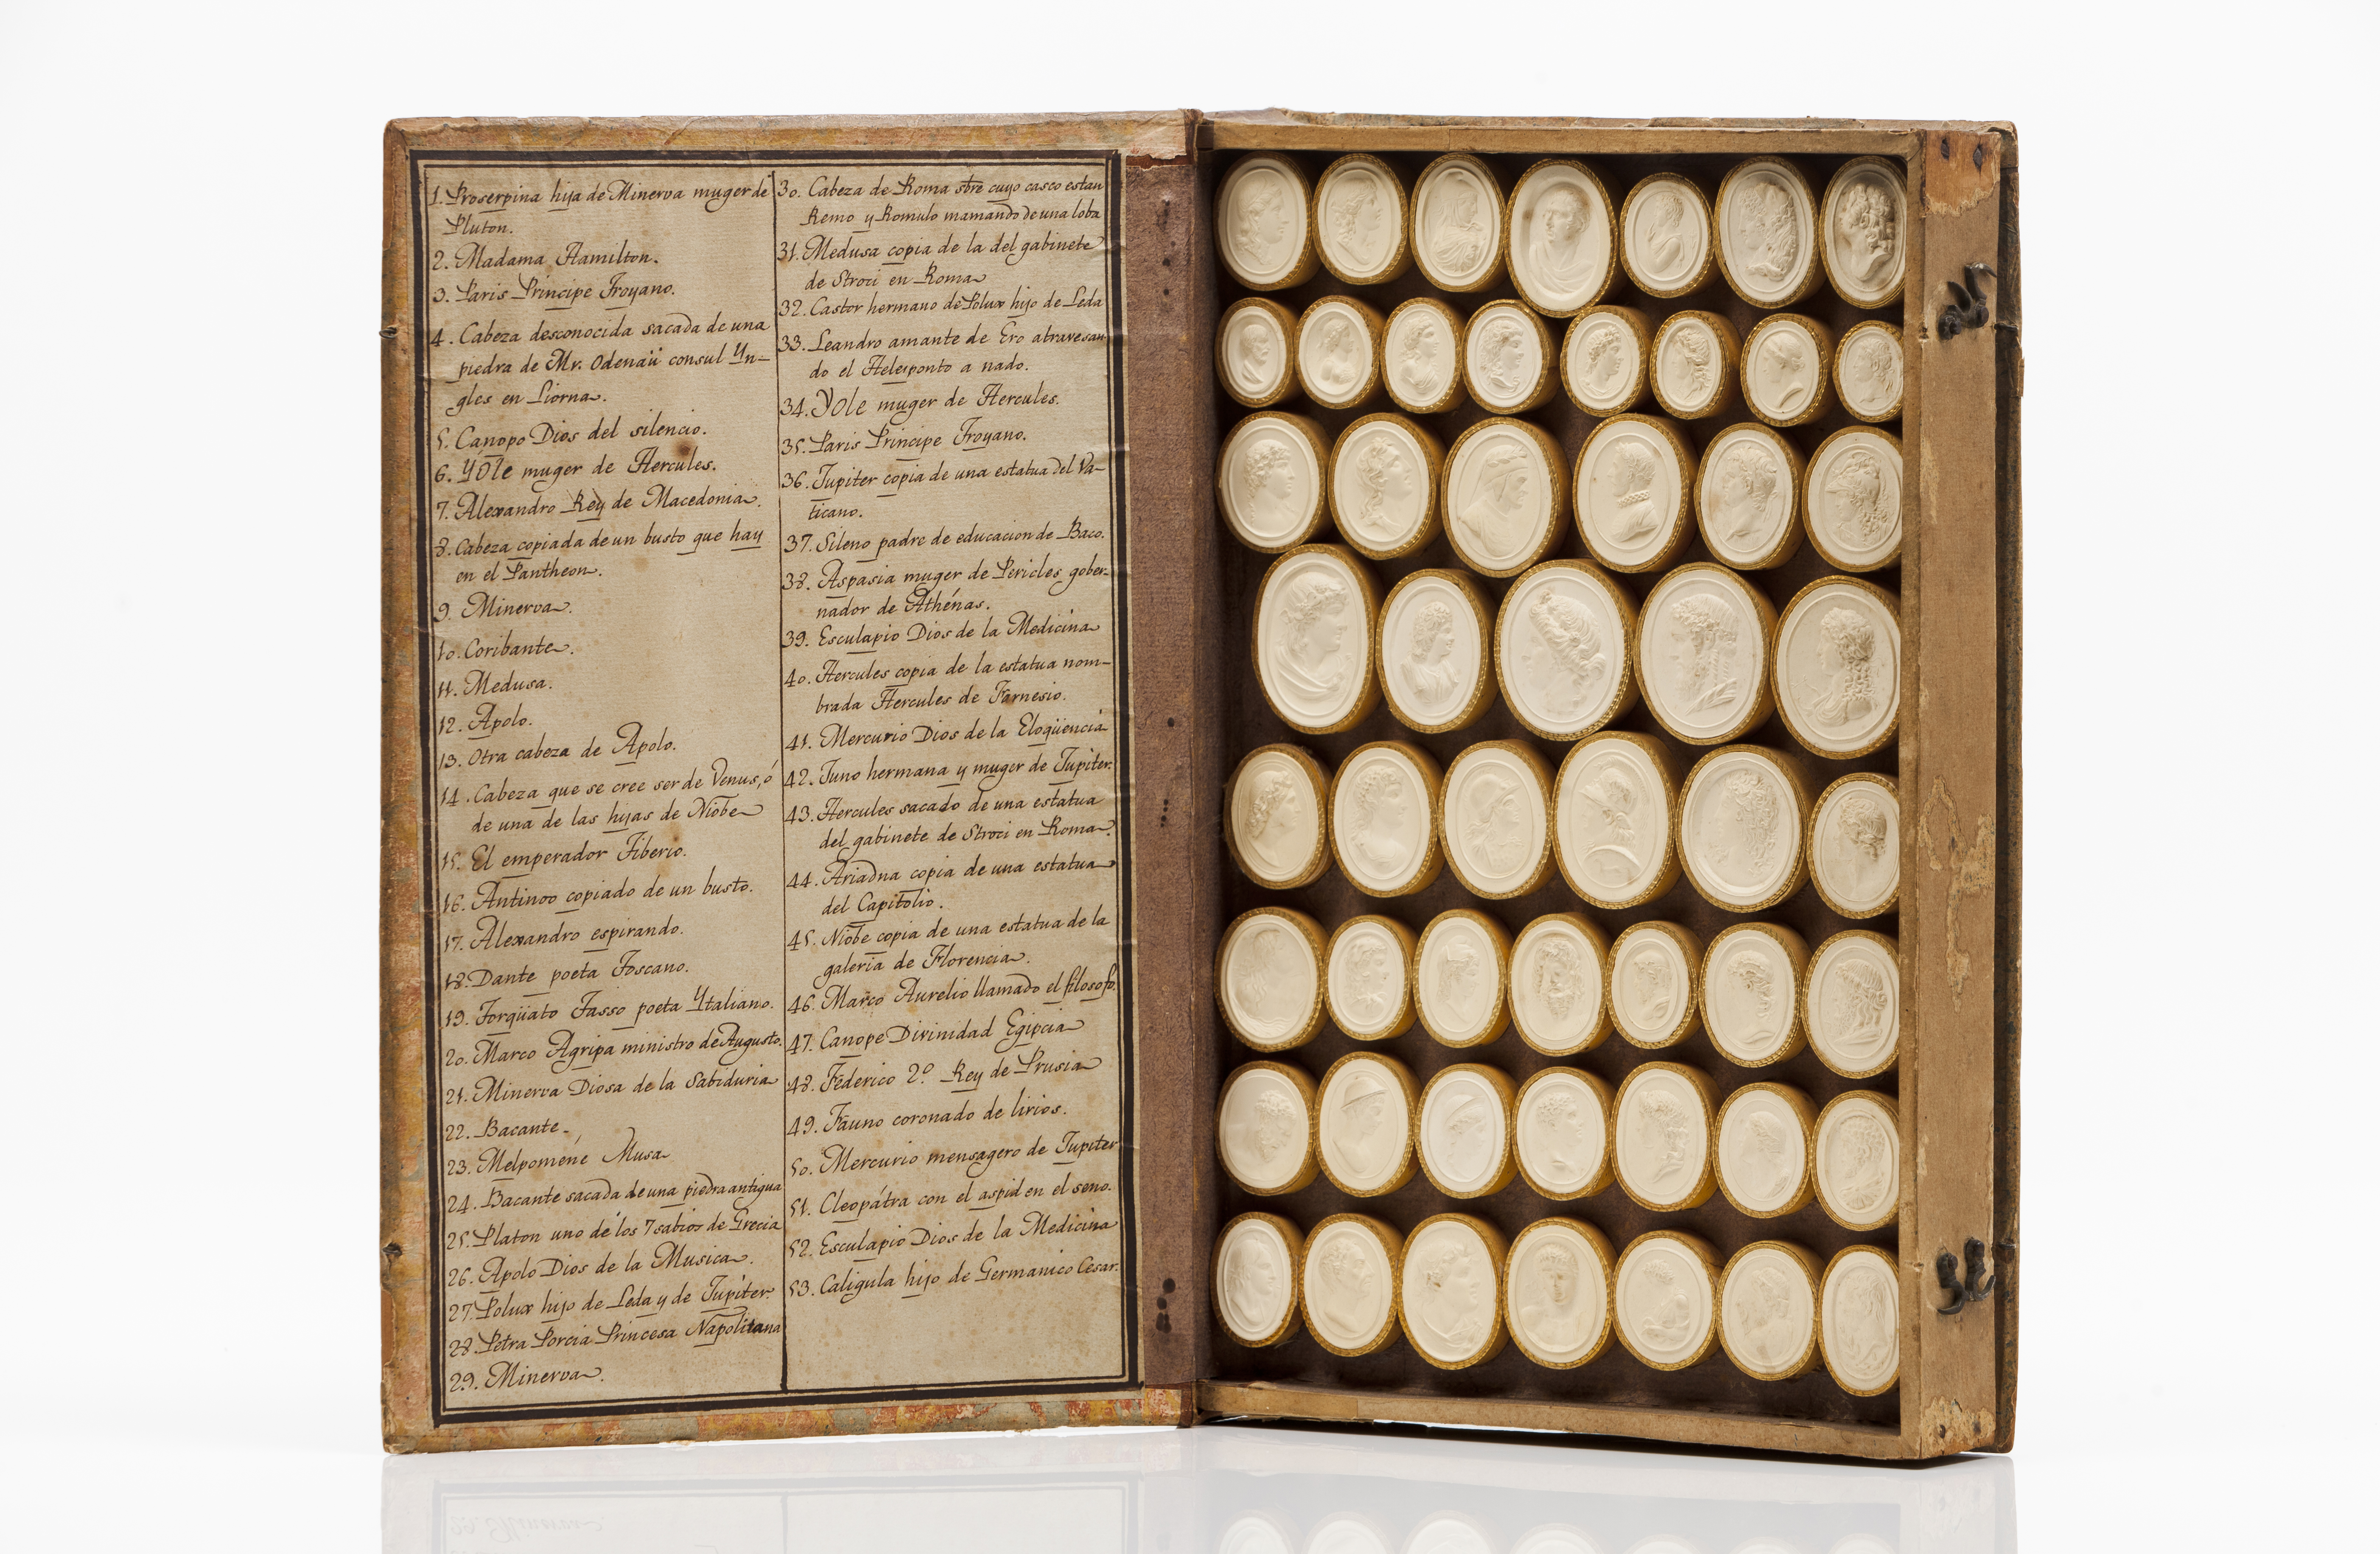 1. Proserpina hija de Minerva muger de
Pluton.
2. Madama Hamilton.
3. Paris Principe Troyano.
4. Cabeza desconocida sacada de una
piedra de Mr. Odenaü consul Yn-
gles en Liorna.
5. Canopo Dios del silencio.
6. Yole muger de Hercules.
7. Alexandro Rey de Macedonia.
8. Cabeza copiada de un busto que hay
en el Pantheon.
9. Minerva.
10. Coribante.
11. Medusa.
12. Apolo.
13. Otra cabeza de Apolo.
14. Cabeza que se cree ser de Venus, ó
de una de las hijas de Niobe
15. El emperador Tiberio.
16. Antinoo copiado de un busto.
17. Alexandro espirando.
18. Dante poeta Toscano.
19. Torqüato Tasso poeta Ytaliano.
20. Marco Agripa ministro de Augusto.
21. Minerva Diosa de la Sabiduria
22. Bacante.
23. Melpoméne Musa
24. Bacante sacada de una piedra antigua
25. Platon uno de los 7 sabios de Grecia
26. Apolo Dios de la Musica.
27. Polux hijo de Leda y de Jupiter.
28. Petra Porcia Princesa Napolitana
29. Minerva.
30. Cabeza de Roma sbre cuyo casco estan
Remo y Romulo mamando de una loba
31. Medusa copia de la del gabinete
de Stroci en Roma
32. Castor hermano de Polux hijo de Leda
33. Leandro amante de Ero atravesan-
do el Helesponto a nado.
34. Yole muger de Hercules.
35. Paris Principe Troyano.
36. Jupiter copia de una estatua del Va-
ticano.
37. Sileno padre de educacion de Baco.
38. Aspasia muger de Pericles gober-
nador de Athénas.
39. Esculapio Dios de la Medicina
40. Hercules copia de la estatua nom-
brada Hercules de Farnesio.
41. Mercurio Dios de la Eloqüencia
42. Juno hermana y muger de Jupiter.
43. Hercules sacado de una estatua
del gabinete de Stroci en Roma.
44. Ariadna copia de una estatua
del Capitolio.
45. Niobe copia de una estatua de la
galeria de Florencia.
46. Marco Aurelio llamado el filosofo.
47. Canope Divinidad Egipcia
48. Federico 2º Rey de Prusia
49. Fauno coronado de lirios.
50. Mercurio mensagero de Jupiter
51. Cleopátra con el aspid en el seno.
52. Esculapio Dios de la Medicina
53. Caligula hijo de Germanico Cesar.